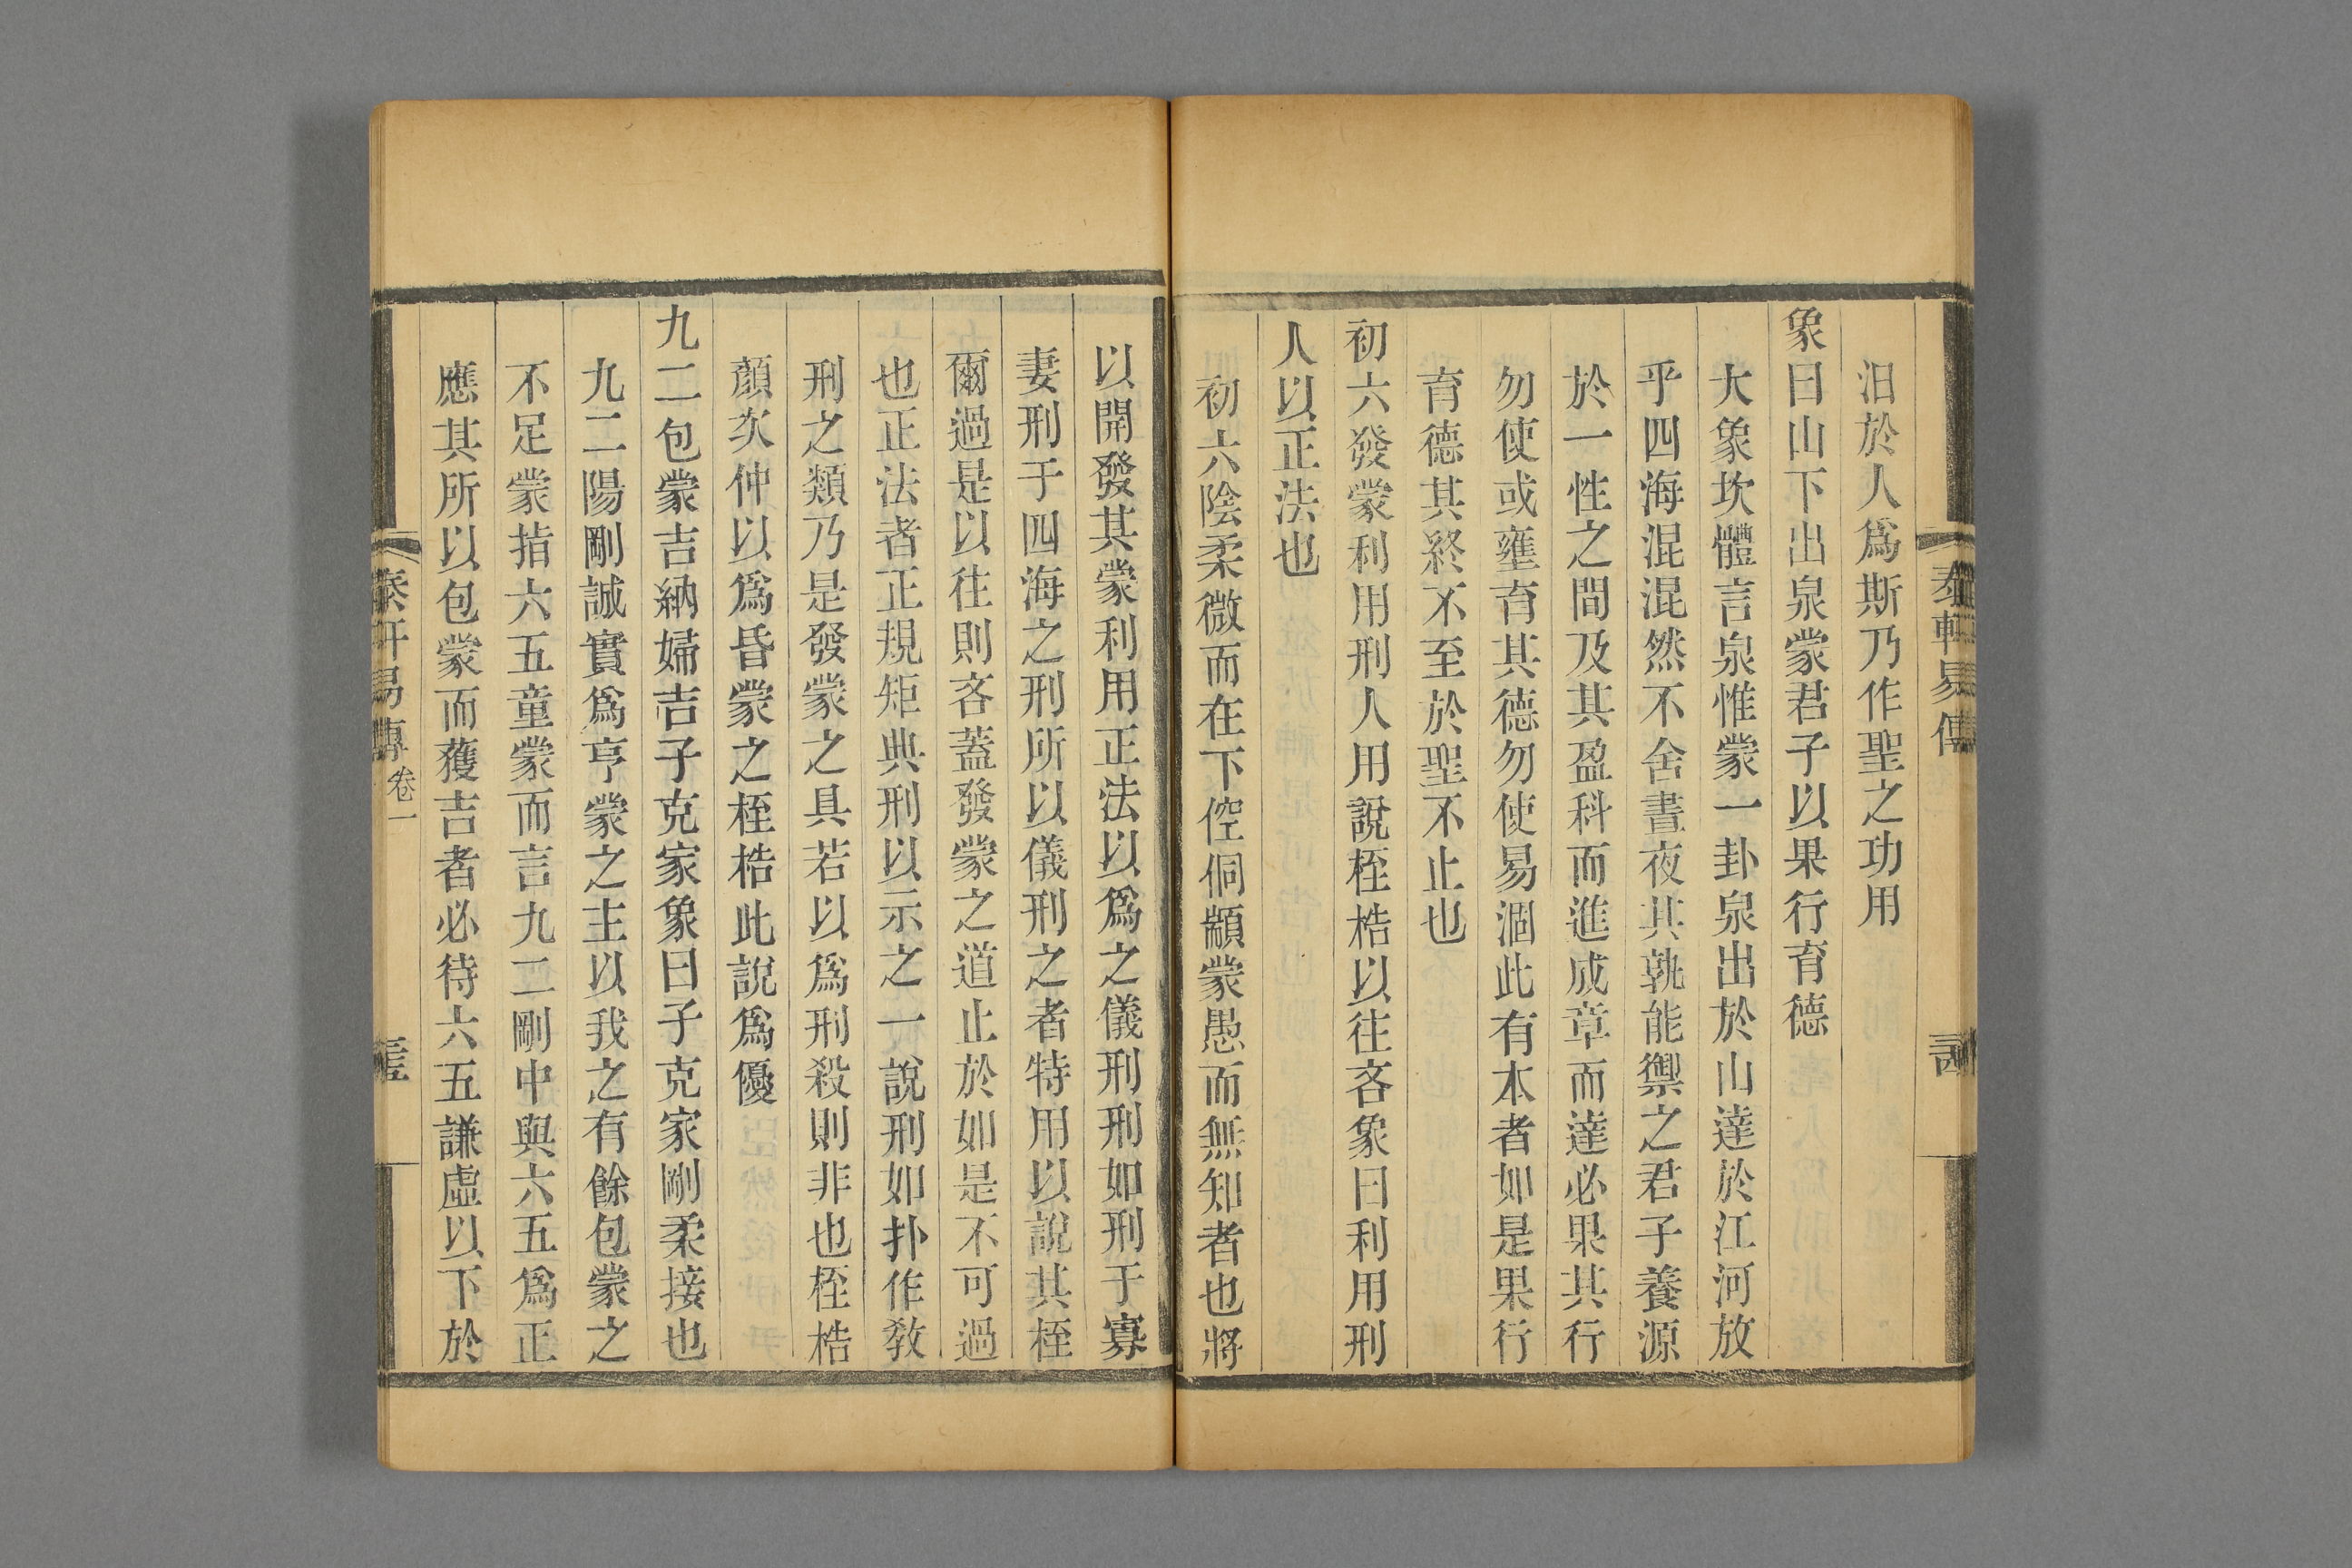 汨於人爲斯乃作聖之功用
象曰山下出泉蒙君子以果行育德
大象坎體言泉惟蒙一卦泉出於山達於江河放
乎四海混混然不舍晝夜其孰能禦之君子養源
於一性之間及其盈科而進成章而達必果其行
勿使或壅育其德勿使易涸此有本者如是果行
育德其終不至於聖不止也
初六發蒙利用刑人用說桎梏以往吝象曰利用刑
人以正法也
初六陰柔微而在下倥侗顓蒙愚而無知者也將
以開發其蒙利用正法以爲之儀刑刑如刑于寡
妻刑于四海之刑所以儀刑之者特用以說其桎
爾過是以往則吝蓋發蒙之道止於如是不可過
也正法者正規矩典刑以示之一說刑如扑作敎
刑之類乃是發蒙之具若以爲刑殺則非也桎梏
顏次仲以爲昏蒙之桎梏此說爲優
九二包蒙吉納婦吉子克家象曰子克家剛柔接也
九二陽剛誠實爲亨蒙之主以我之有餘包蒙之
不足蒙指六五童蒙而言九二剛中與六五爲正
應其所以包蒙而獲吉者必待六五謙虛以下於
易傳 卷一